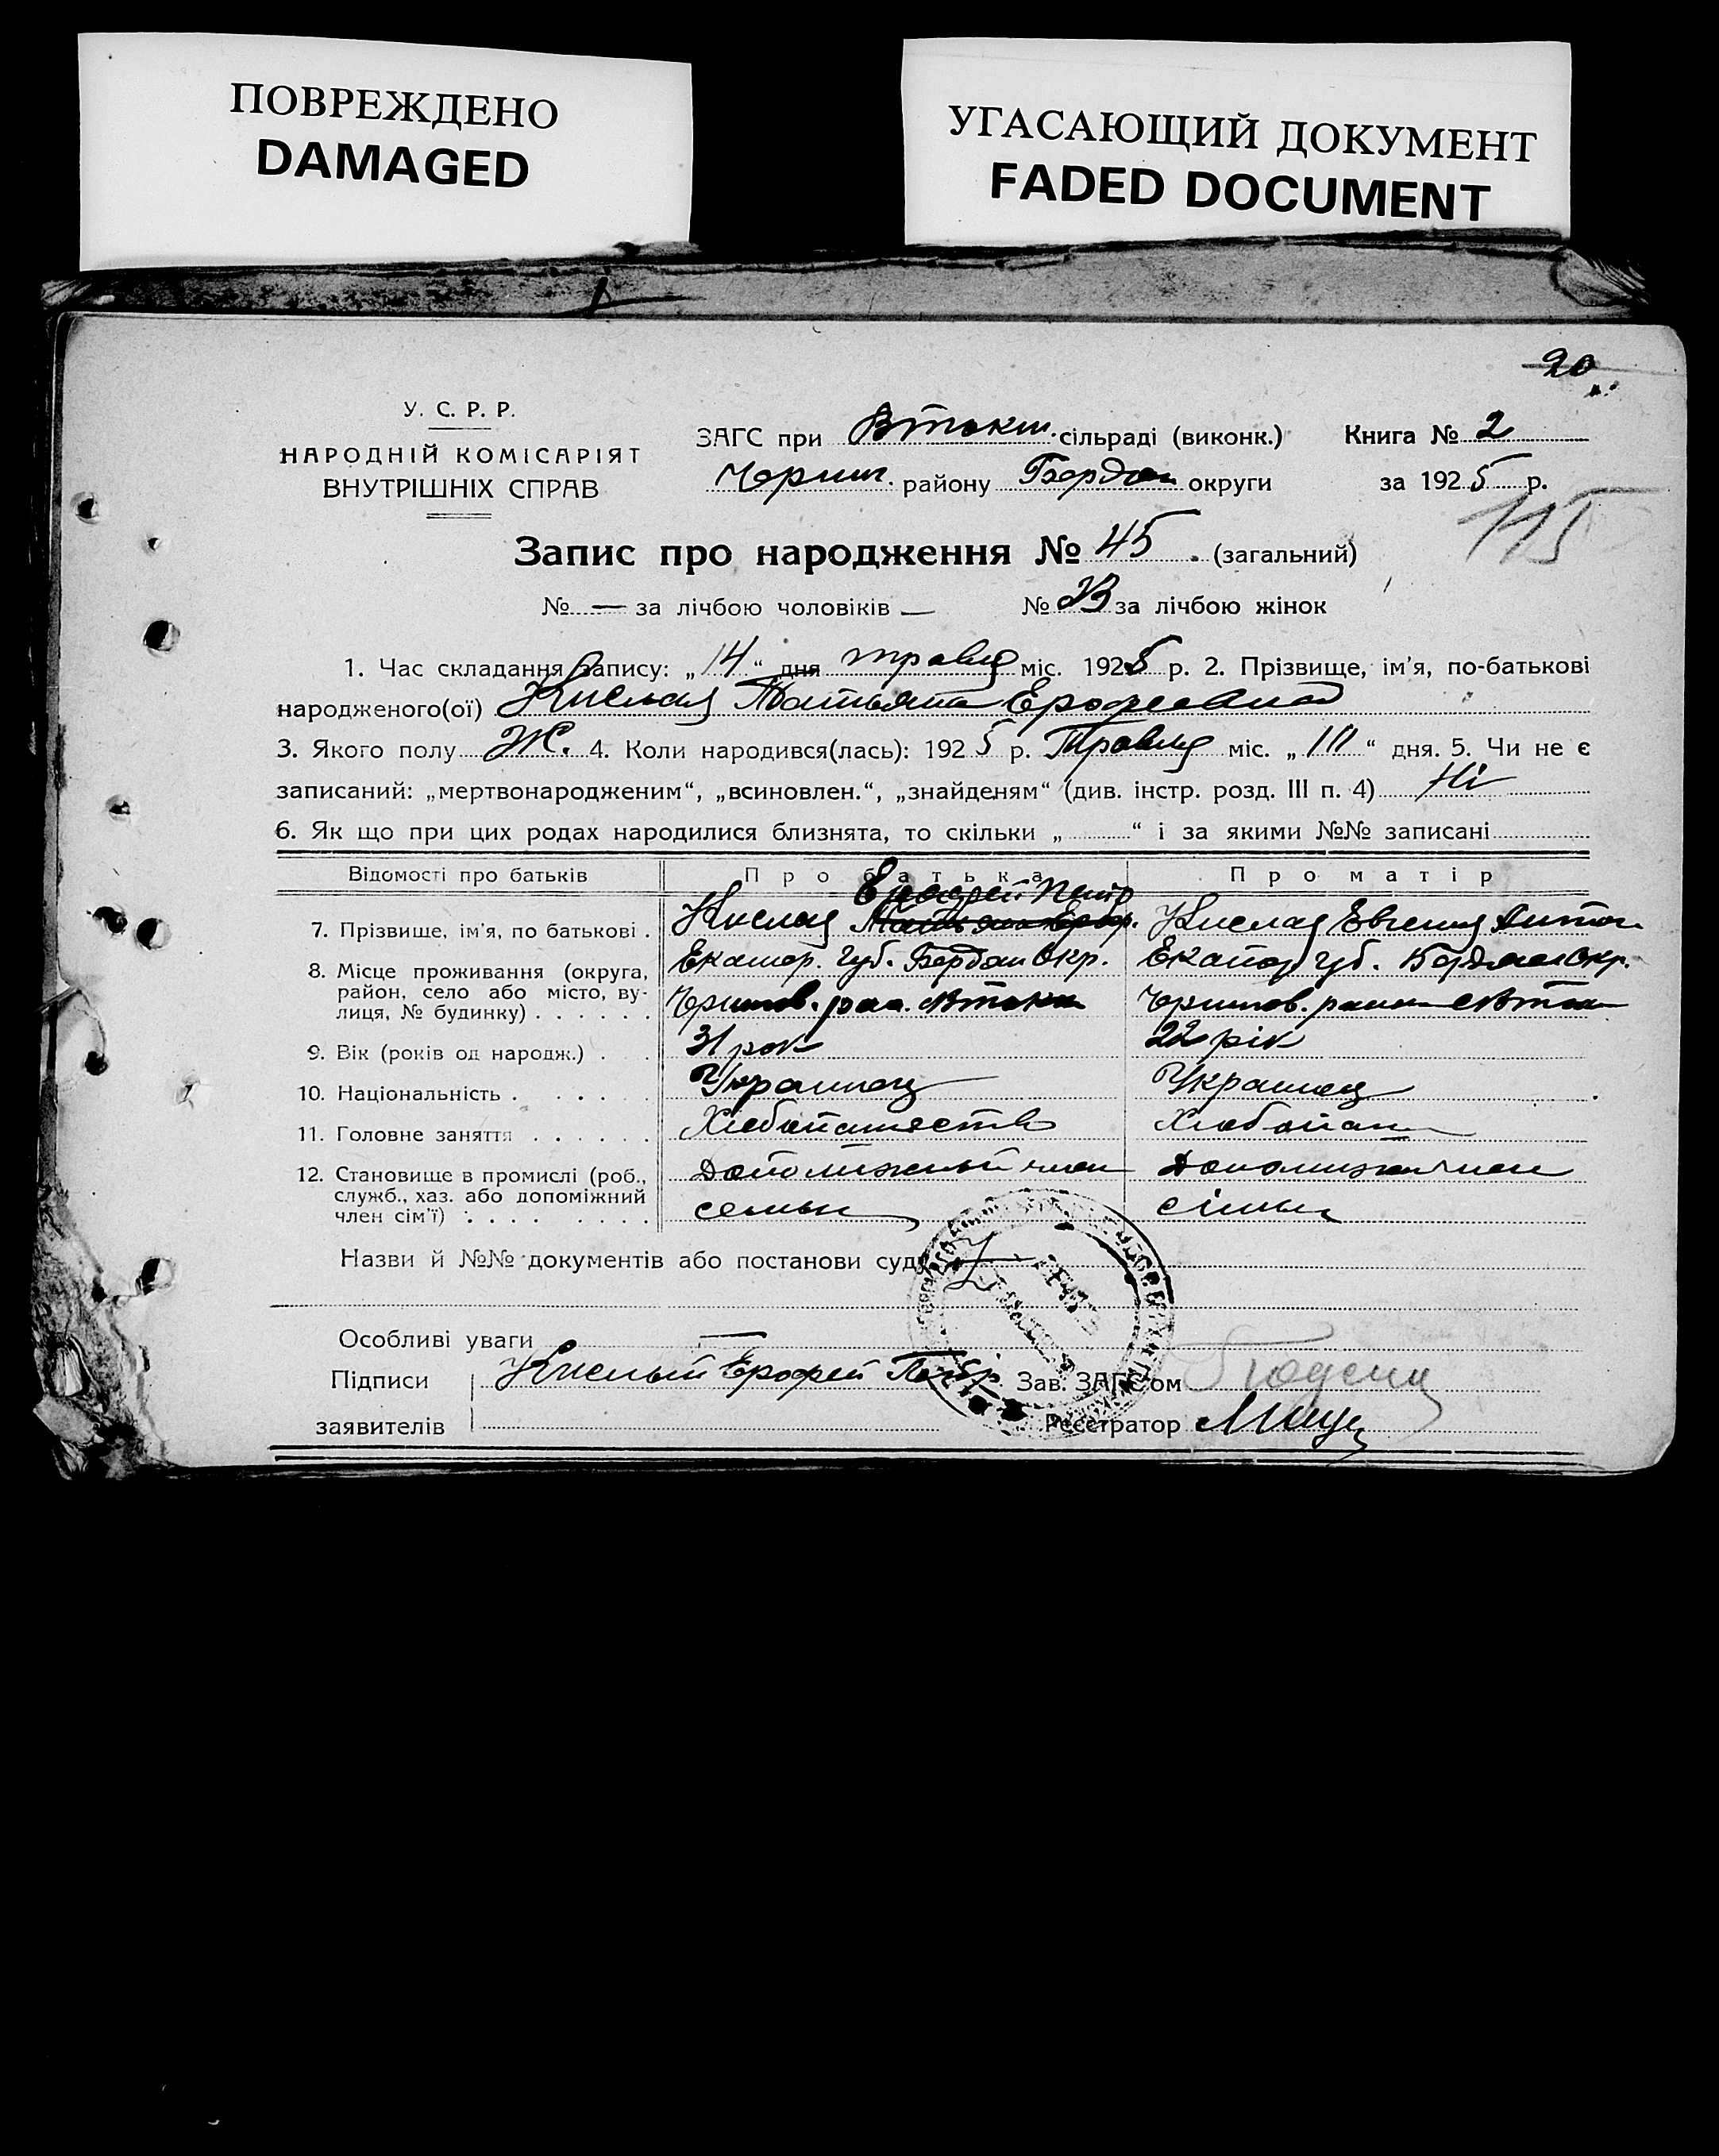 ПОВРЕЖДЕНО
DAMAGED
УГАСАЮЩИЙ ДОКУМЕНТ
FADED DOCUMENT
20
У. С. Р. Р.
НАРОДНІЙ КОМІСАРІЯТ
ВНУТРІШНІХ СПРАВ
ЗАГС при Втокш. сільраді (виконк.) Книга № 2
Черниг. району Бердян округи за 1925 р.
115
Запис про народження № 45 . (загальний)
№ — за лічбою чоловіків — № 23 за лічбою жінок
1. Час складання запису: „14“ дня травня міс. 1925 р. 2. Прізвище, ім'я, по-батькові
народженого(ої) Кислая Татьяна Ерофеевна
3. Якого полу Ж. 4. Коли народився(лась): 1925 р. Травня міс. „ “ дня. 5. Чи не є
записаний: „мертвонародженим“, „всиновлен.“, „знайденям“ (див. інстр. розд. III п. 4) Ні
6. Як що при цих родах народилися близнята, то скільки „ “ і за якими №№ записані
Відомості про батьків Про батька Про матір
Ерофей Петр
7. Прізвище, ім'я, по батькові . Кислая Татьяна Ероф. Кислая Евгения Антон
8. Місце проживання (округа, Екатер. Губ. Бердян Окр. Екатер Губ. Бердянс Окр.
район, село або місто, ву-
лиця, № будинку) . . . . . . Чернигов. ра Чернигов. 
9. Вік (років од народж.) . . 31 рок 22 рік
10. Національність . . . . . Украинец Украинец
11. Головне заняття . . . . . . Хлебопашество Хлебопаш
12. Становище в промислі (роб., Дополижный член Дополижн член
служб., хаз. або допоміжний
член сім'ї) . . . . . . . . . семьи сімьи
Назви й №№ документів або постанови суду
Особливі уваги —
Підписи Кислый Ерофей Петр. Зав. ЗАГС'ом
заявителів Реєстратор